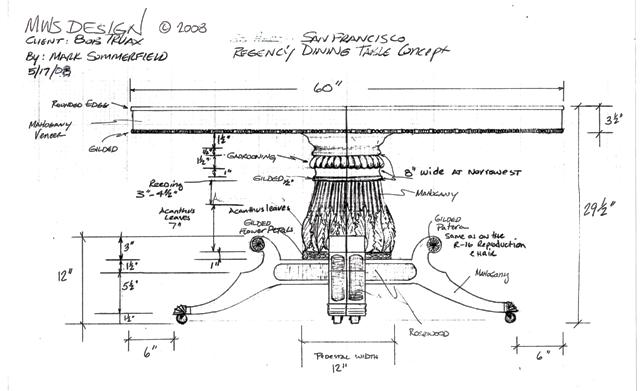 MWS DESIGN © 2008
CLIENT: BOB TRUAX
BY: MARK SOMMERFIELD
5/17/08
SAN FRANCISCO
REGENCY DINING TABLE CONCEPT
60"
ROUNDED EDGE
MAHOGANY
VENEER
GILDED
3½"
1½"
½"
1½"
1"
GADROONING
8" WIDE AT NARROWEST
GILDED ½"
Reeding
3"-4½"
MAHOGANY
29½"
Acanthus
leaves
7"
Acanthus leaves
GILDED
Flower Petals
GILDED
Patera
SAME AS ON THE
R-16 REPRODUCTION
CHAIR
12"
3"
1"
1½"
5½"
1½"
MAHOGANY
ROSEWOOD
6"
PEDESTAL WIDTH
12"
6"